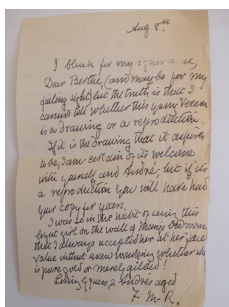 Aug 8
I blush for my ignorance,
Dear Berthe, (and maybe for my
failing sight) but the truth is that I
cannot tell whether this your
is a drawing or a reproduction.
If it is the drawing that it appears
to be, I am certain of its welcome
with yourself and André; but if it's
a reproduction you will have had
your copy for years.
I was so in the habit of seeing this
bright girl on the wall of
that I always accepted her at her face
value without even wondering whether she
is pure gold or merely gilded!
Loving yours &
F. M. R.